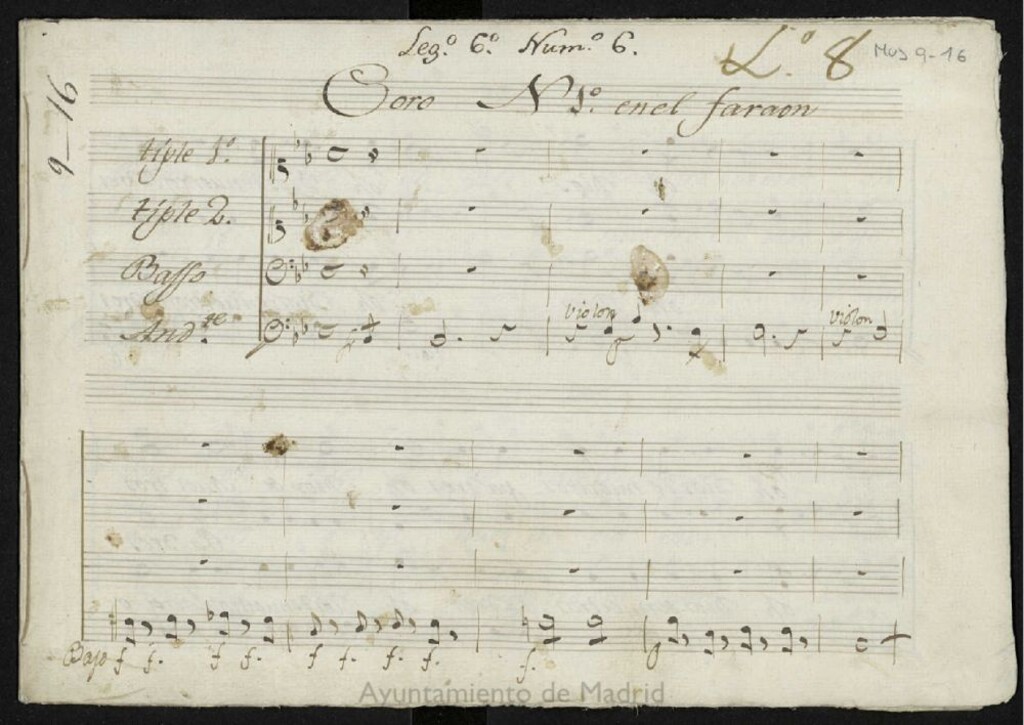 Leg.º 6.º Num.º 6.
L.º 8
Mus 9-16
9-16
Coro Nº 1.º en el faraon
tiple 1.º
tiple 2.
Basso
And.te
violon
violon
Bajo f f. f f. f f. f. f. f.
Ayuntamiento de Madrid